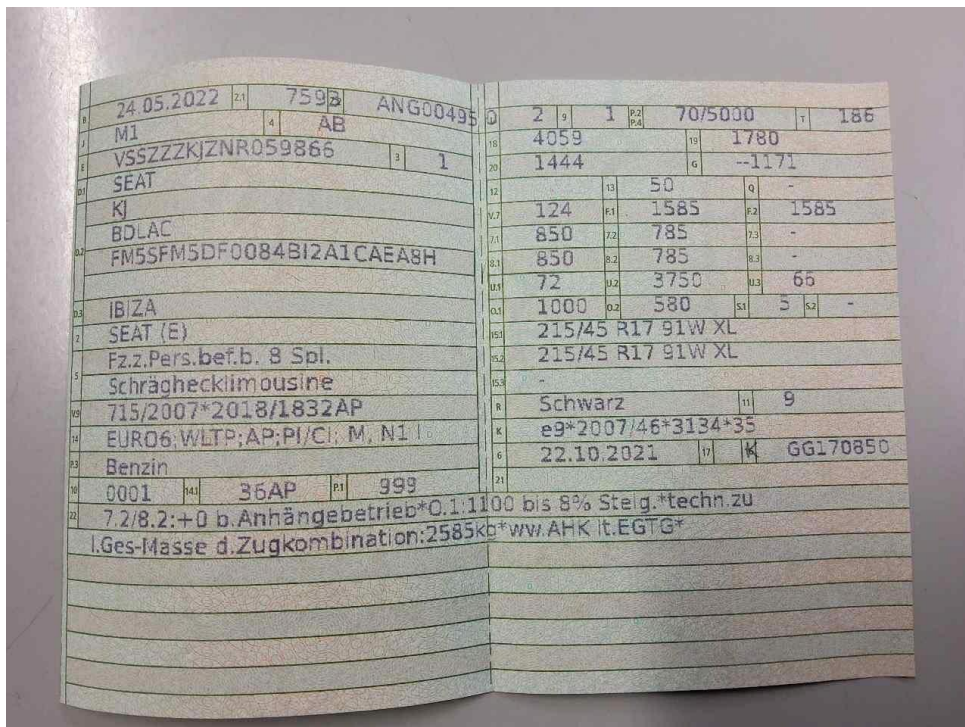 B 24.05.2022 2.1 7593 2.2 ANG00495
J M1 4 AB
E VSSZZZKJZNR059866 3 1
D.1 SEAT
KJ
BDLAC
D.2 FM5SFM5DF0084BI2A1CAEA8H
D.3 IBIZA
2 SEAT (E)
Fz.z.Pers.bef.b. 8 Spl.
5 Schräghecklimousine
V.9 715/2007*2018/1832AP
14 EURO6;WLTP;AP;PI/CI; M, N1 I
P.3 Benzin
10 0001 14.1 36AP P.1 999
L 2 9 1 P.2 P.4 70/5000 T 186
18 4059 19 1780
20 1444 G --1171
12 13 50 Q -
V.7 124 F.1 1585 F.2 1585
7.1 850 7.2 785 7.3 -
8.1 850 8.2 785 8.3 -
U.1 72 U.2 3750 U.3 66
O.1 1000 O.2 580 S.1 5 S.2 -
15.1 215/45 R17 91W XL
15.2 215/45 R17 91W XL
15.3 -
R Schwarz 11 9
K e9*2007/46*3134*35
6 22.10.2021 17 K 16 GG170850
21
22 7.2/8.2:+0 b.Anhängebetrieb*O.1:1100 bis 8% Steig.*techn.zu
l.Ges-Masse d.Zugkombination:2585kg*ww.AHK lt.EGTG*